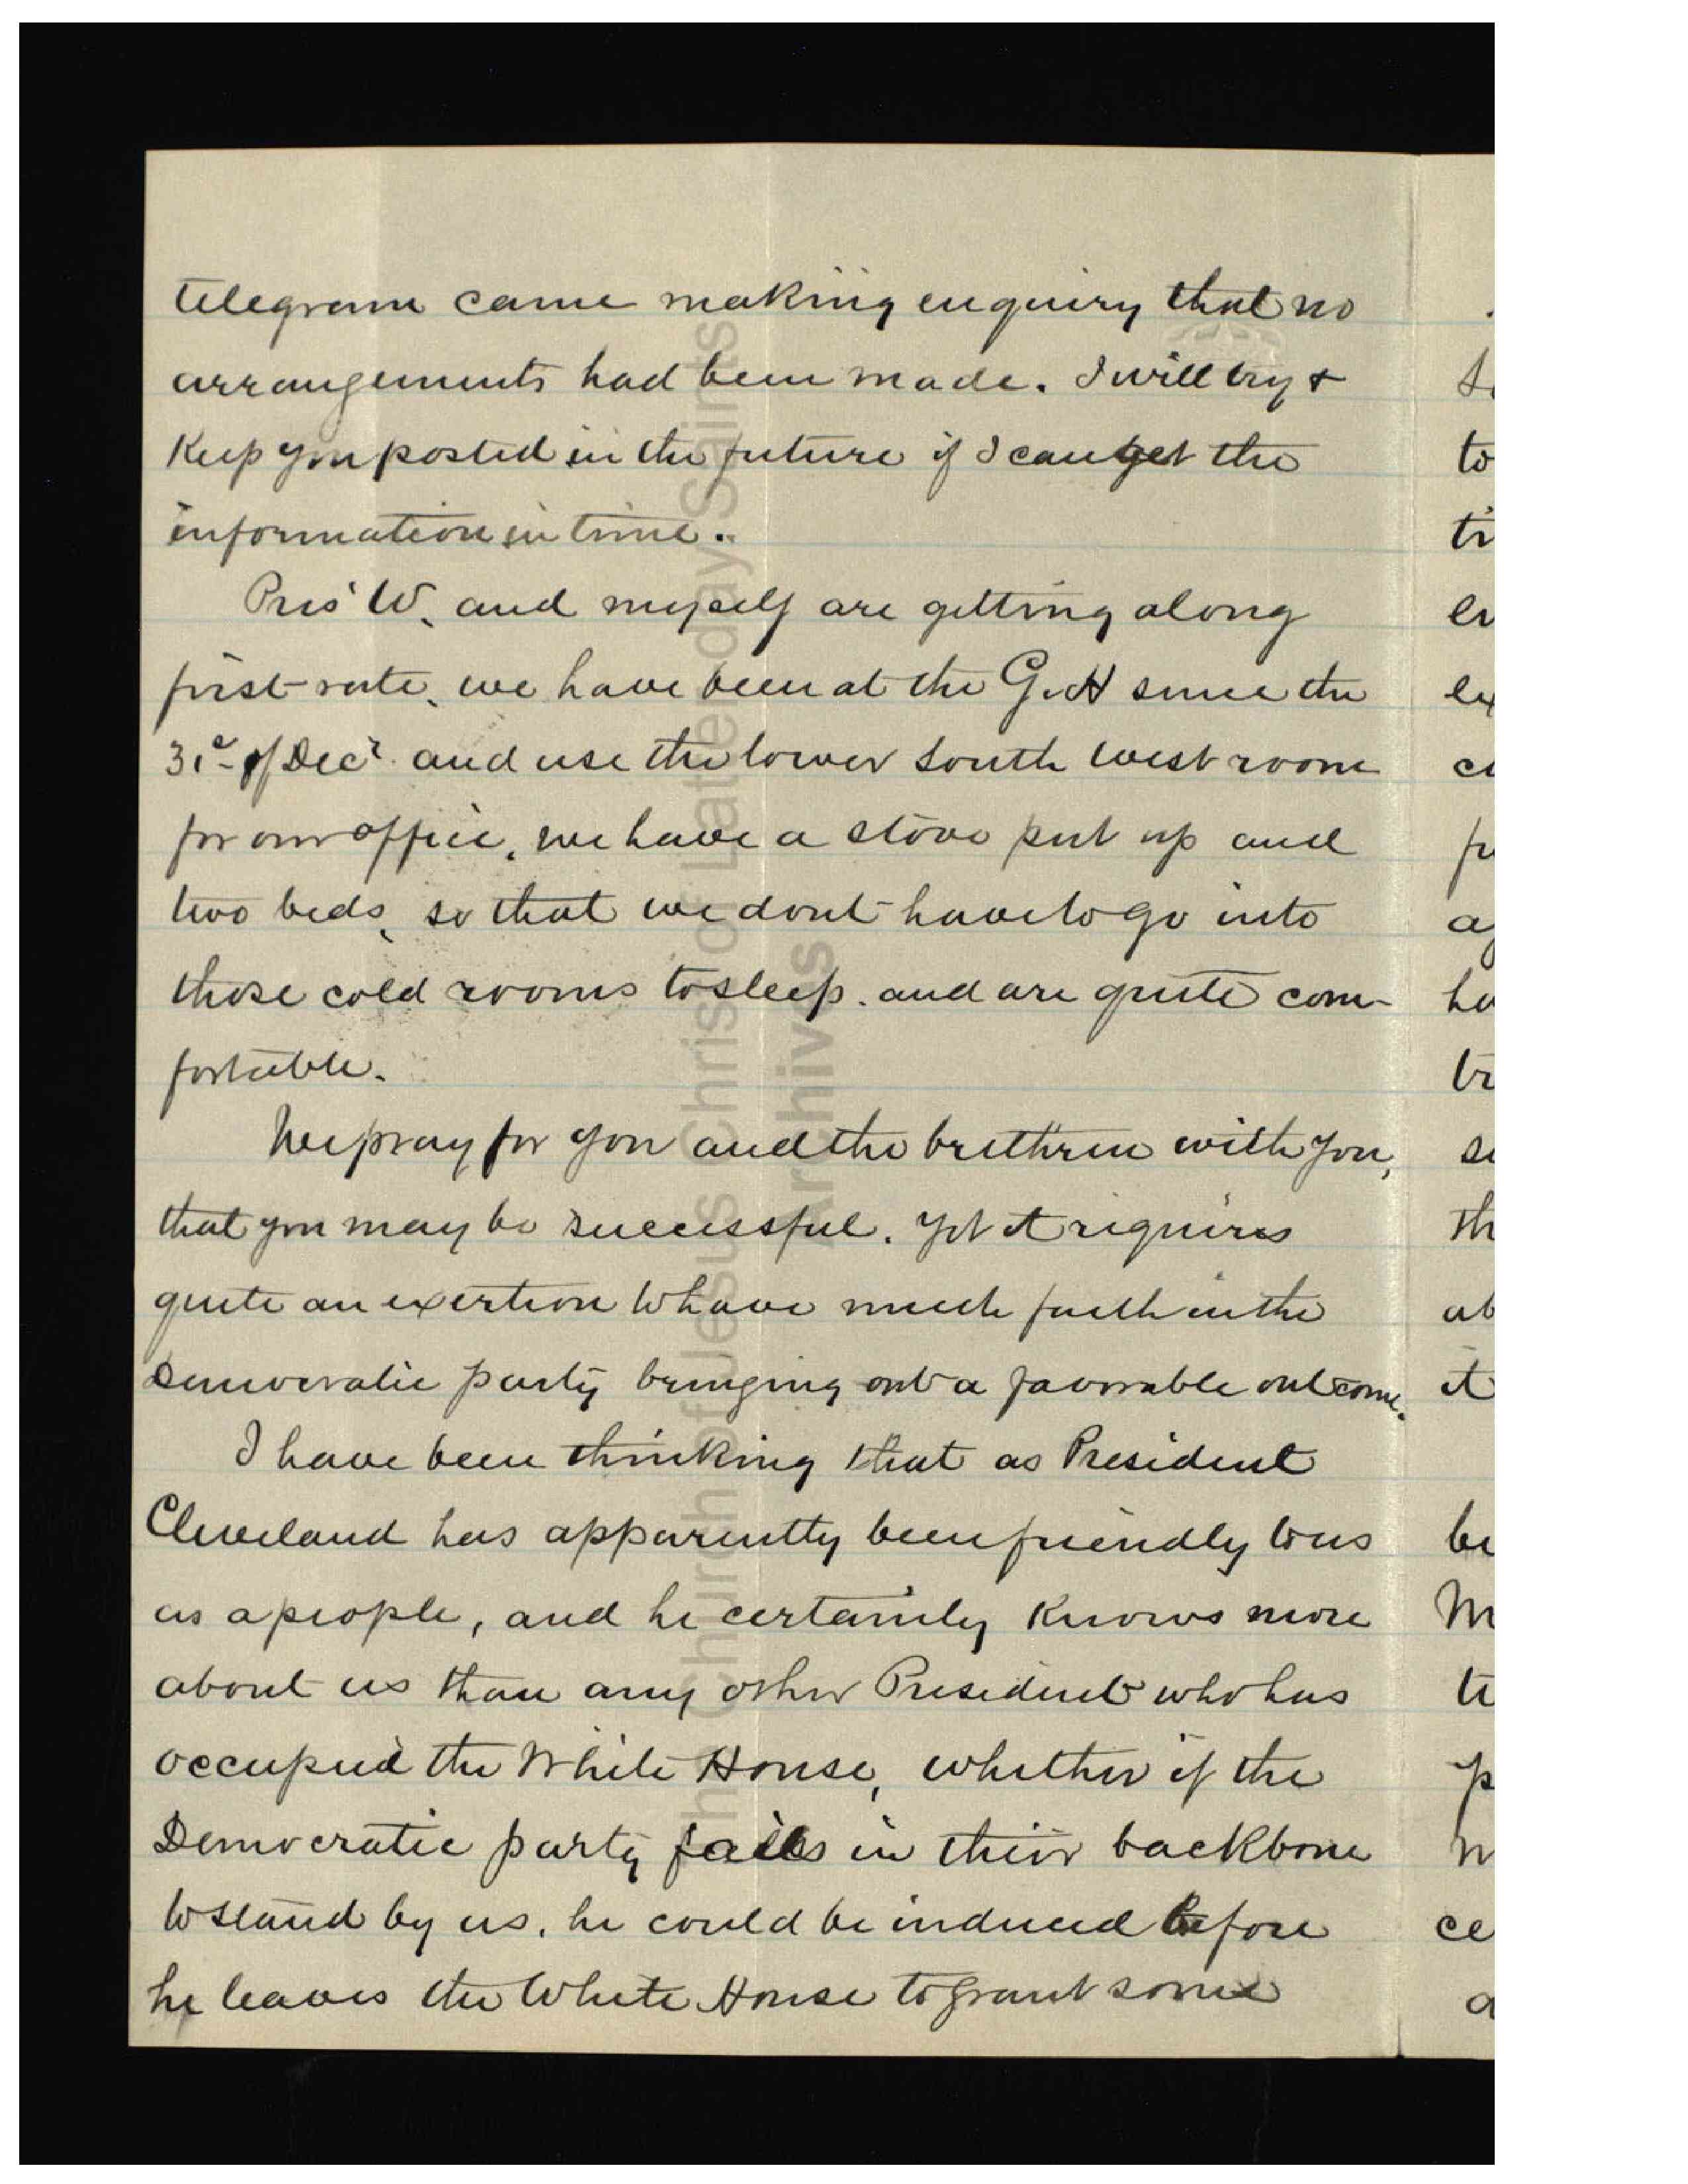 telegram came making enquiry that no
arrangements had been made. I will try &
Keep you posted in the future if I can get the
information in time.
Pres' W. and myself are getting along
first-rate, we have been at the G.H since the
31st of Decr. and use the lower south west room
for our office, we have a stove put up and
two beds, so that we dont have to go into
those cold rooms to sleep. and are quite com-
fortable.
We pray for you and the brethren with you,
that you may be successful. Yet it requires
quite an exertion to have much faith in the
Democratic party bringing out a favorable outcome.
I have been thinking that as President
Cleveland has apparently been friendly to us
as a people, and he certainly Knows more
about us than any other President who has
occupied the White House, whether if the
Democratic party fails in their backbone
to stand by us, he could be induced before
he leaves the White House to grant some
to
ti
ha
th
it
be
The Church of Jesus Christ of Latter-day Saints
Archives